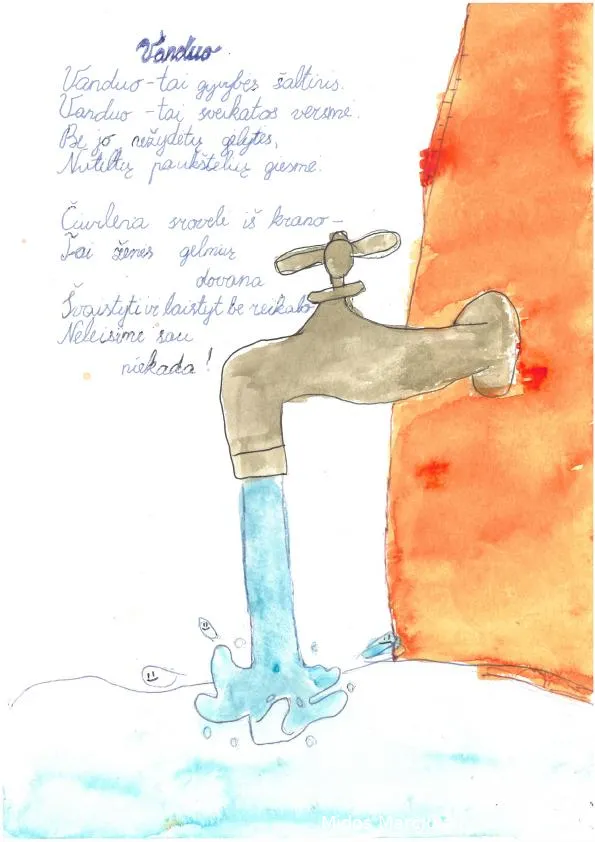 Vanduo.
Vanduo-tai gyvybės šaltinis.
Vanduo -tai sveikatos versmė.
Be jo nežydėtų gėlytės,
Nutiltų paukštelių giesmė.
Čiurlena srovelė iš krano-
Tai žemės gelmių
dovana
Švaistyti ir laistyt be reikalo
Neleisime sau
niekada!